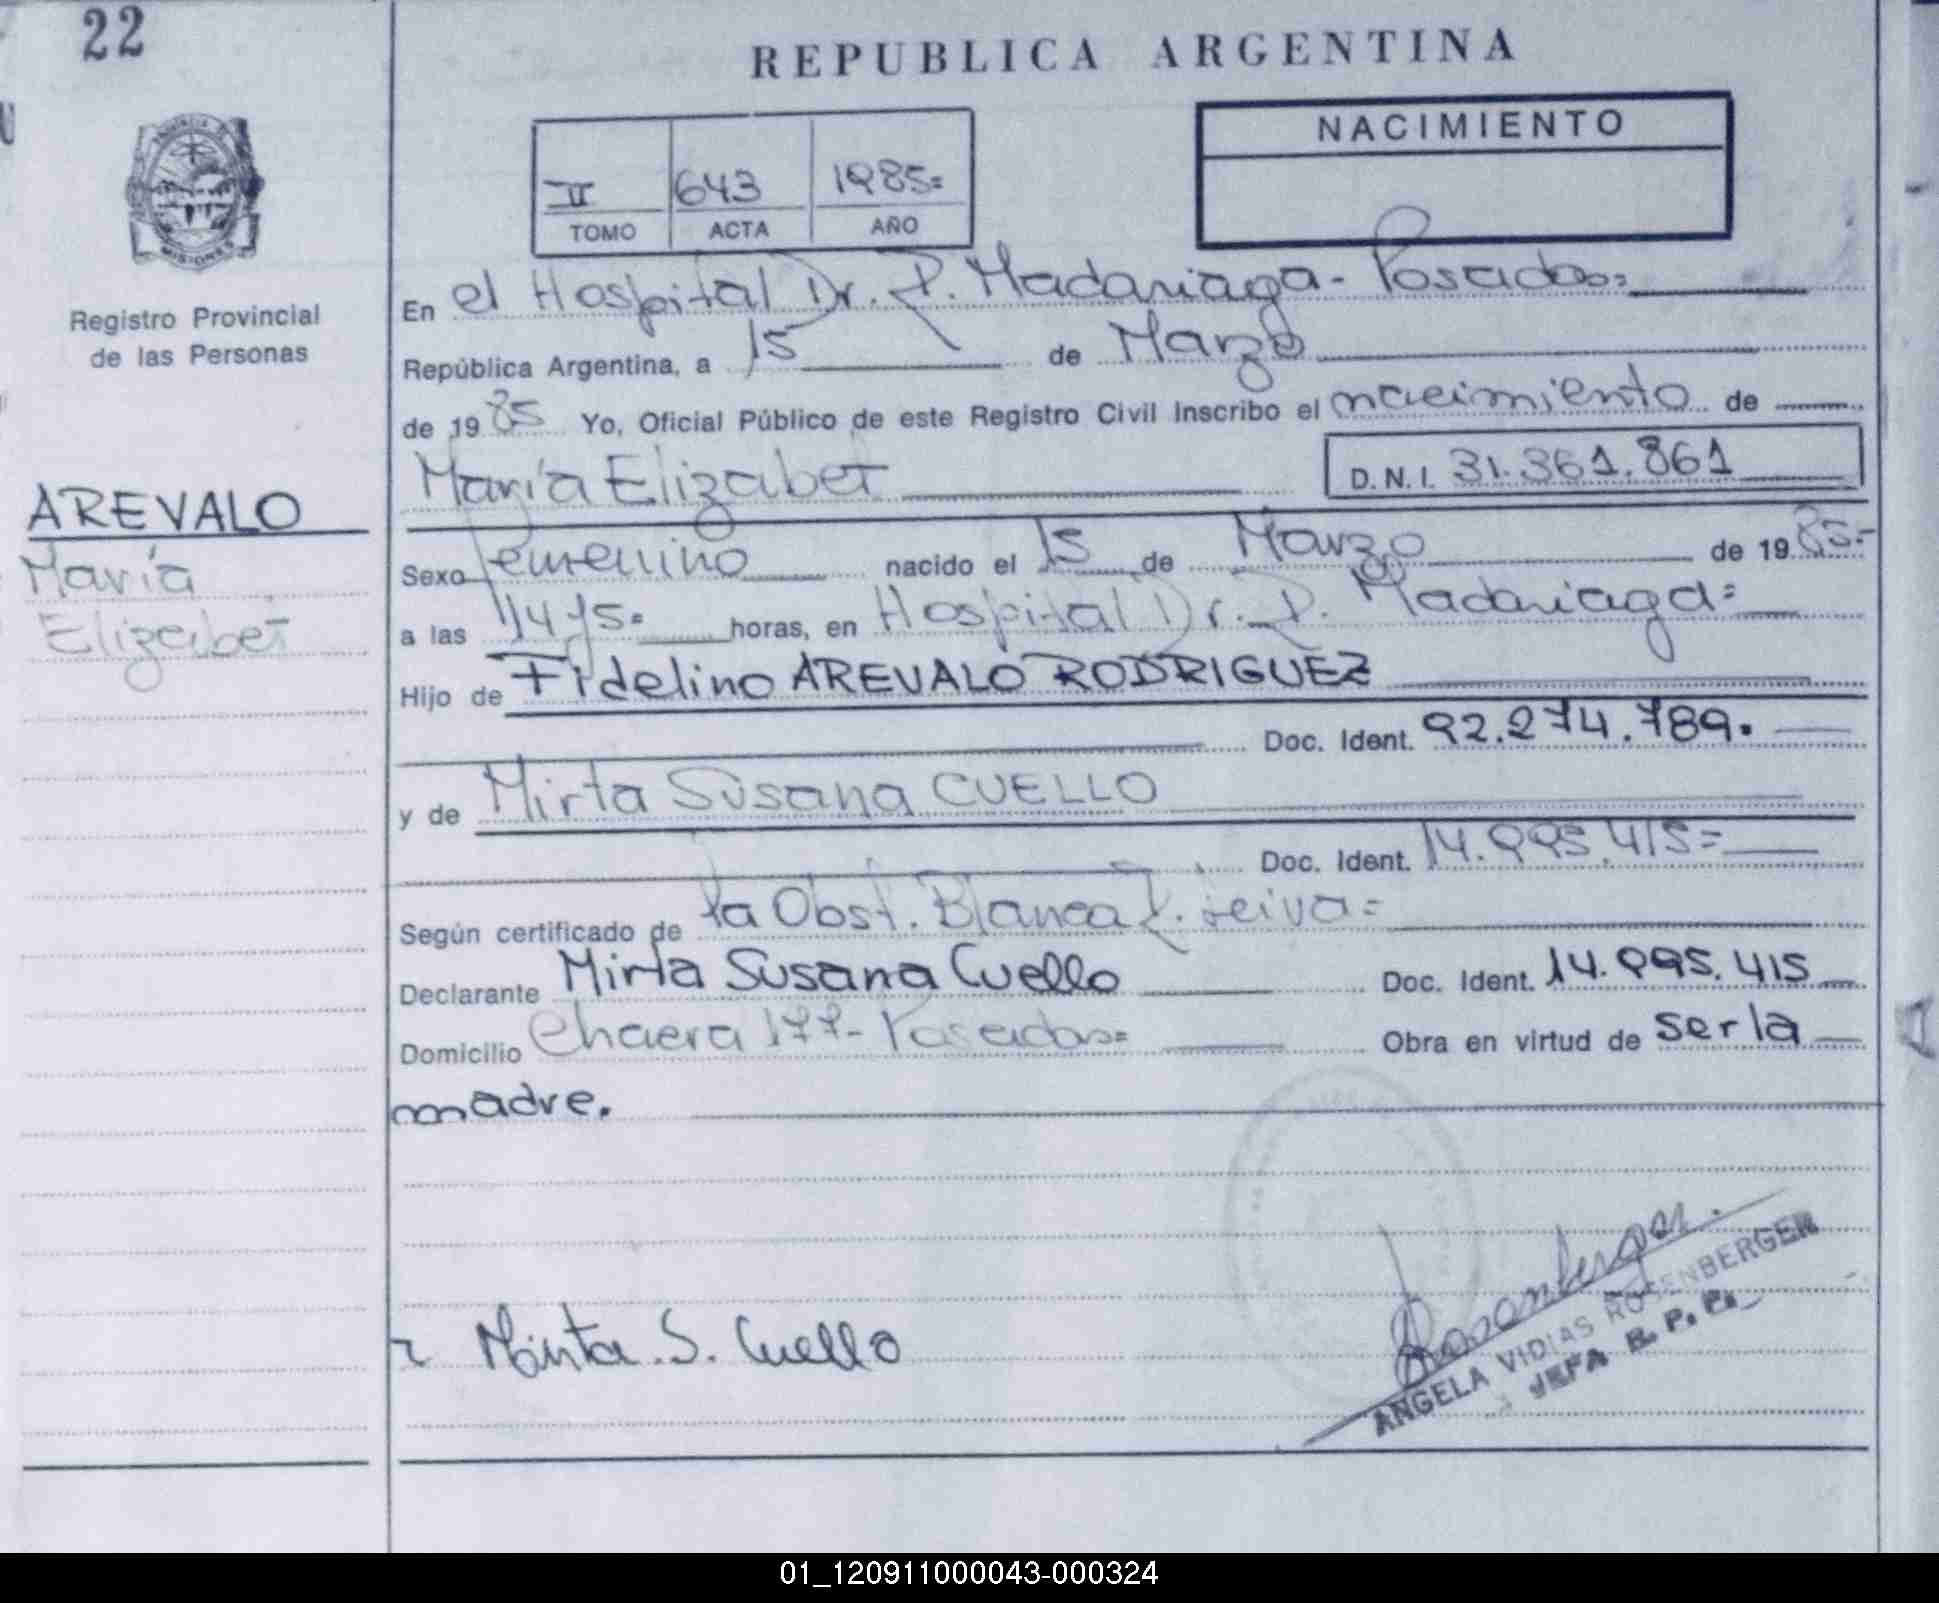 22
REPUBLICA ARGENTINA
NACIMIENTO
II 643 1985=
TOMO ACTA AÑO
PROVINCIA DE
MISIONES
Registro Provincial
de las Personas
AREVALO
María
Elizabet
En el Hospital Dr. R. Madariaga - Posadas=
República Argentina, a 15 de Marzo
de 1985 Yo, Oficial Público de este Registro Civil Inscribo el nacimiento de
María Elizabet D.N.I. 31.361.861
Sexo femenino nacido el 15 de Marzo de 1985.-
a las 1,45= horas, en Hospital Dr. R. Madariaga=
Hijo de Fidelino AREVALO RODRIGUEZ
Doc. Ident. 92.274.789.
y de Mirta Susana CUELLO
Doc. Ident. 14.995.415=
Según certificado de la Obst. Blanca Leiva=
Declarante Mirta Susana Cuello Doc. Ident. 14.995.415
Domicilio Chacra 177- Posadas= Obra en virtud de ser la
madre.
Mirta. S. Cuello
Rosemberger.
ANGELA VIDIAS ROSENBERGER
JEFA B. P. P.
01_120911000043-000324